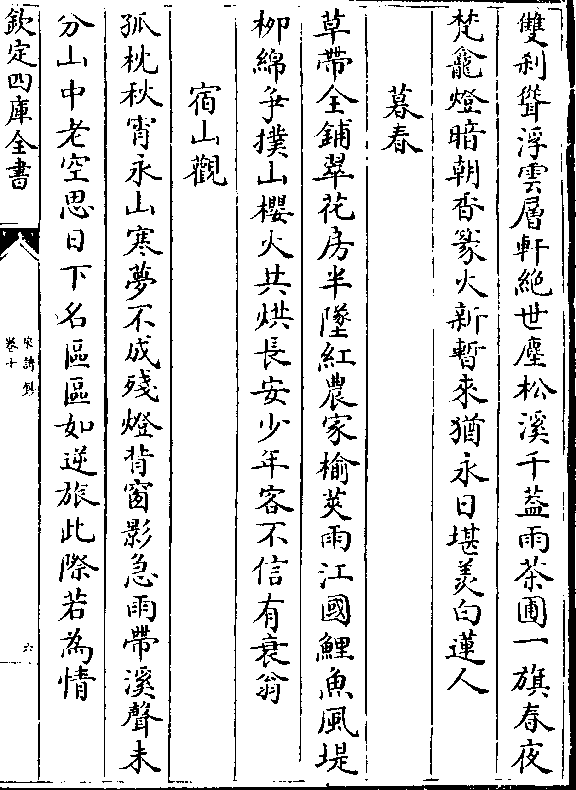 雙刹聳浮雲層軒絶世塵松溪千葢雨茶圃一旗春夜
梵龕燈暗朝香篆火新暫來猶永日堪羨白蓮人
暮春
草帶全鋪翠花房半墜紅農家榆莢雨江國鯉魚風堤
柳綿爭撲山櫻火共烘長安少年客不信有衰翁
宿山觀
孤枕秋宵永山寒夢不成殘燈背窗影急雨帶溪聲未
分山中老空思日下名區區如逆旅此際若為情
欽定四庫全書
宋詩鈔
卷十
六